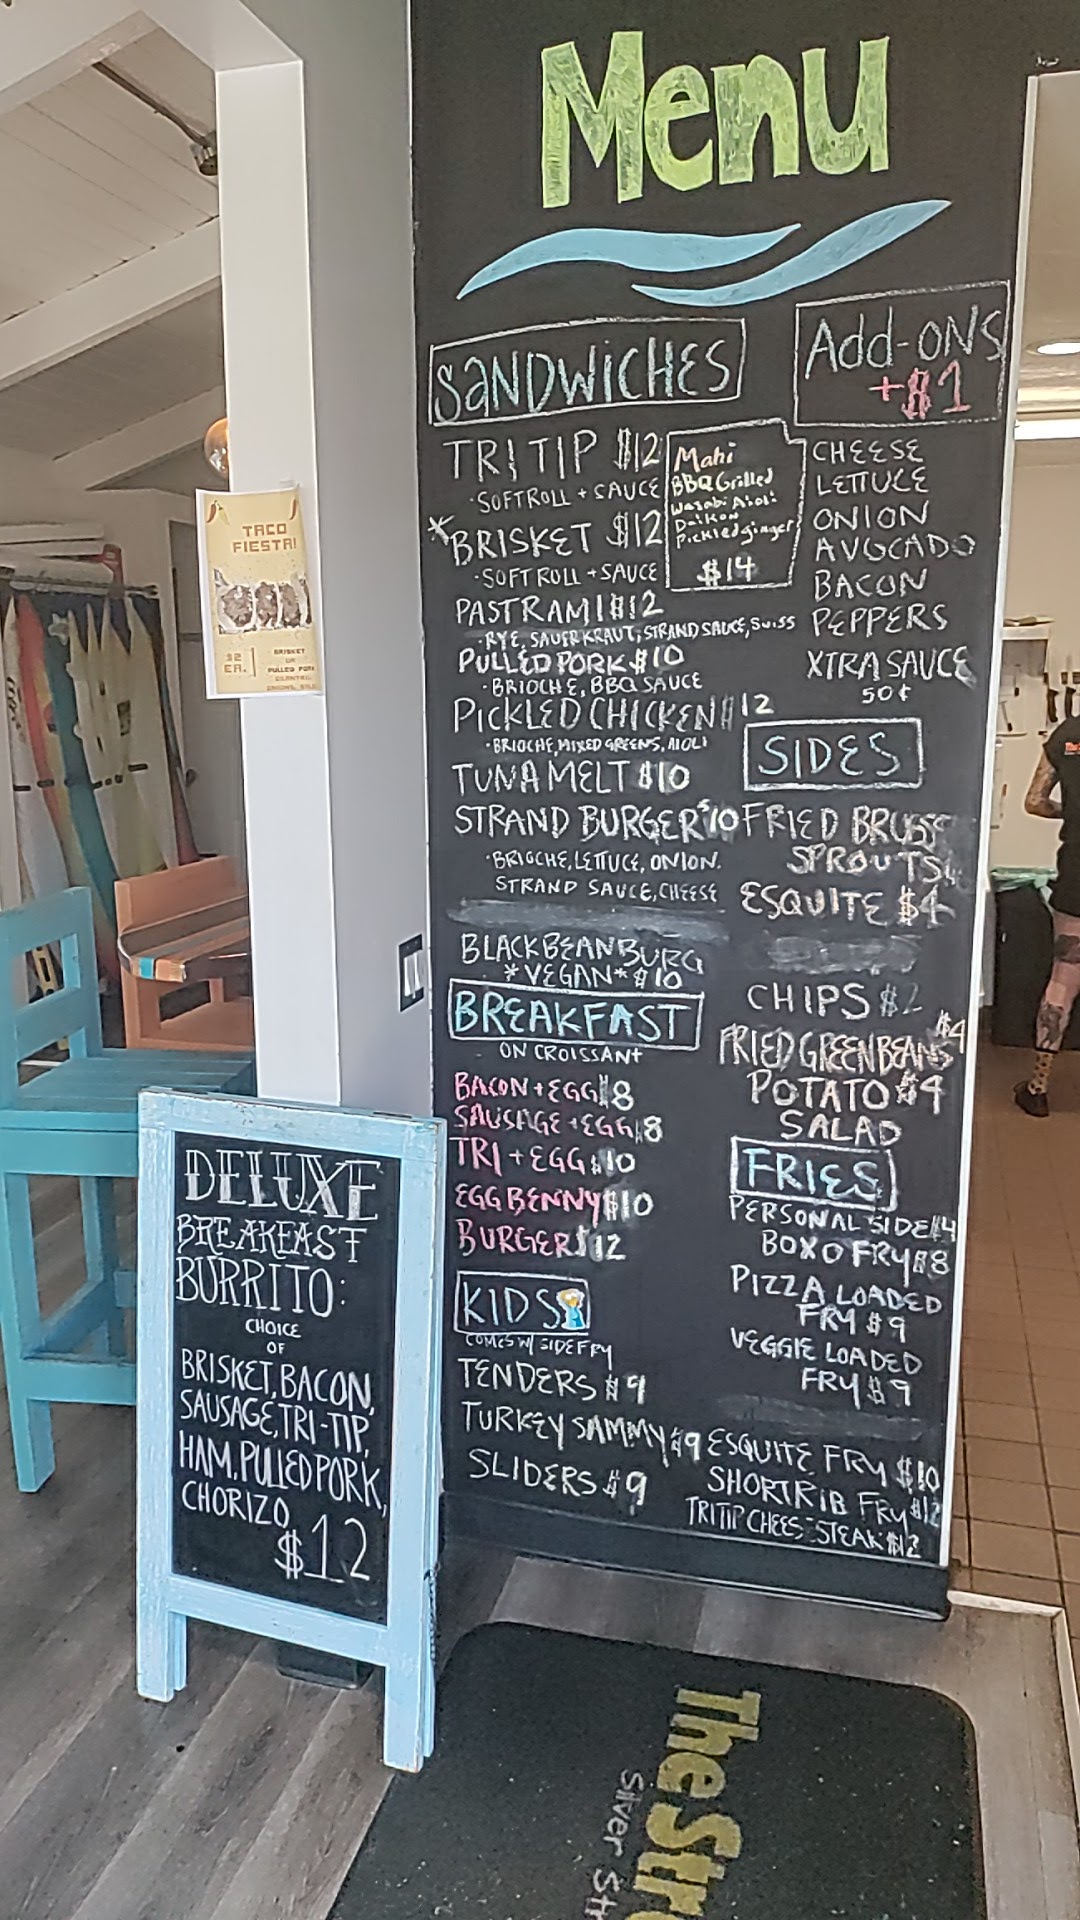 Menu
SANDWICHES
TRI TIP $12
· SOFT ROLL + SAUCE
* BRISKET $12
· SOFT ROLL + SAUCE
PASTRAMI $12
· RYE, SAUERKRAUT, STRAND SAUCE, SWISS
PULLED PORK $10
· BRIOCHE, BBQ SAUCE
PICKLED CHICKEN $12
· BRIOCHE, MIXED GREENS, AIOLI
TUNA MELT $10
STRAND BURGER $10
· BRIOCHE, LETTUCE, ONION.
STRAND SAUCE, CHEESE
BLACK BEAN BURG
*VEGAN* $10
Mahi
BBQ Grilled
Wasabi Aioli
Daikon
Pickled ginger
$14
BREAKFAST
ON CROISSANT
BACON + EGG $8
SAUSAGE + EGG $8
TRI + EGG $10
EGG BENNY $10
BURGER $12
KIDS
COMES W/ SIDE FRY
TENDERS $9
TURKEY SAMMY $9
SLIDERS $9
Add-ONS
+$1
CHEESE
LETTUCE
ONION
AVOCADO
BACON
PEPPERS
XTRA SAUCE
50¢
SIDES
FRIED BRUSS
SPROUTS
ESQUITE $4
CHIPS $2
FRIED GREEN BEANS $4
POTATO $4
SALAD
FRIES
PERSONAL SIDE $4
BOX O FRY $8
PIZZA LOADED
FRY $9
VEGGIE LOADED
FRY $9
ESQUITE FRY $10
SHORTRIB FRY $12
TRITIP CHEESE STEAK $12
TACO
FIESTA!
$2
EA.
BRISKET
OR
PULLED PORK
CILANTRO,
DELUXE
BREAKFAST
BURRITO:
CHOICE
OF
BRISKET, BACON,
SAUSAGE, TRI-TIP,
HAM, PULLED PORK,
CHORIZO
$12
The Str
Silver Str